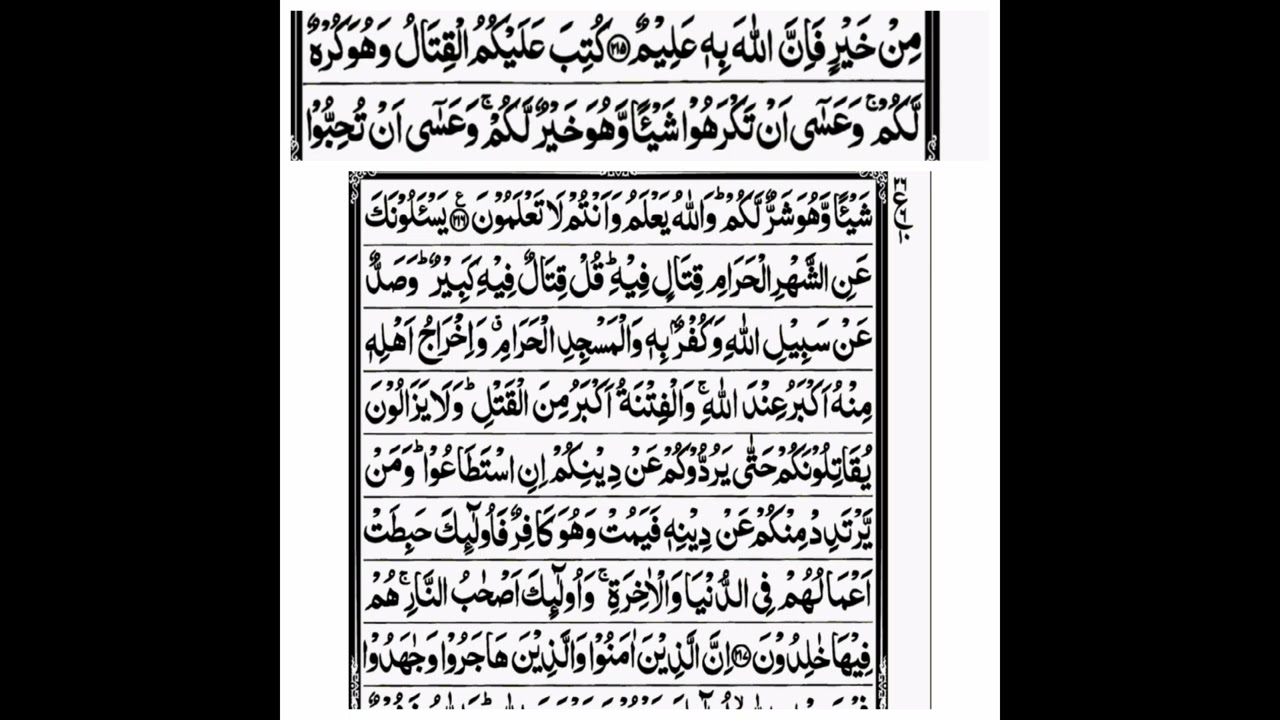 مِنْ خَيْرٍ فَاِنَّ اللّٰهَ بِهٖ عَلِيْمٌ ﴿۲۱۵﴾ كُتِبَ عَلَيْكُمُ الْقِتَالُ وَهُوَ كُرْهٌ
لَّكُمْ ۚ وَعَسٰۤى اَنْ تَكْرَهُوْا شَيْـًٔا وَّهُوَ خَيْرٌ لَّكُمْ ۚ وَعَسٰۤى اَنْ تُحِبُّوْا
شَيْـًٔا وَّهُوَ شَرٌّ لَّكُمْ ؕ وَاللّٰهُ يَعْلَمُ وَاَنْتُمْ لَا تَعْلَمُوْنَ ﴿۲۱۶﴾ ع يَسْـَٔلُوْنَكَ
۲۶
ع
۶
۱۰
عَنِ الشَّهْرِ الْحَرَامِ قِتَالٍ فِيْهِ ؕ قُلْ قِتَالٌ فِيْهِ كَبِيْرٌ ؕ وَصَدٌّ
عَنْ سَبِيْلِ اللّٰهِ وَكُفْرٌۢ بِهٖ وَالْمَسْجِدِ الْحَرَامِ ۗ وَاِخْرَاجُ اَهْلِهٖ
مِنْهُ اَكْبَرُ عِنْدَ اللّٰهِ ۚ وَالْفِتْنَةُ اَكْبَرُ مِنَ الْقَتْلِ ؕ وَلَا يَزَالُوْنَ
يُقَاتِلُوْنَكُمْ حَتّٰى يَرُدُّوْكُمْ عَنْ دِيْنِكُمْ اِنِ اسْتَطَاعُوْا ؕ وَمَنْ
يَّرْتَدِدْ مِنْكُمْ عَنْ دِيْنِهٖ فَيَمُتْ وَهُوَ كَافِرٌ فَاُولٰٓئِكَ حَبِطَتْ
اَعْمَالُهُمْ فِى الدُّنْيَا وَالْاٰخِرَةِ ۚ وَاُولٰٓئِكَ اَصْحٰبُ النَّارِ ۚ هُمْ
فِيْهَا خٰلِدُوْنَ ﴿۲۱۷﴾ اِنَّ الَّذِيْنَ اٰمَنُوْا وَالَّذِيْنَ هَاجَرُوْا وَجٰهَدُوْا